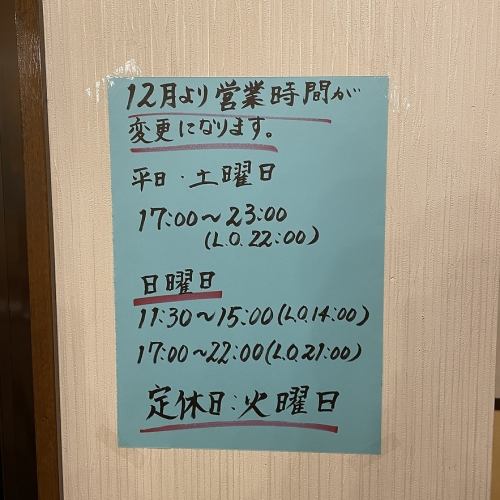 12月より営業時間が
変更になります。
平日・土曜日
17:00～23:00
(L.O.22:00)
日曜日
11:30～15:00(L.O.14:00)
17:00～22:00(L.O.21:00)
定休日:火曜日